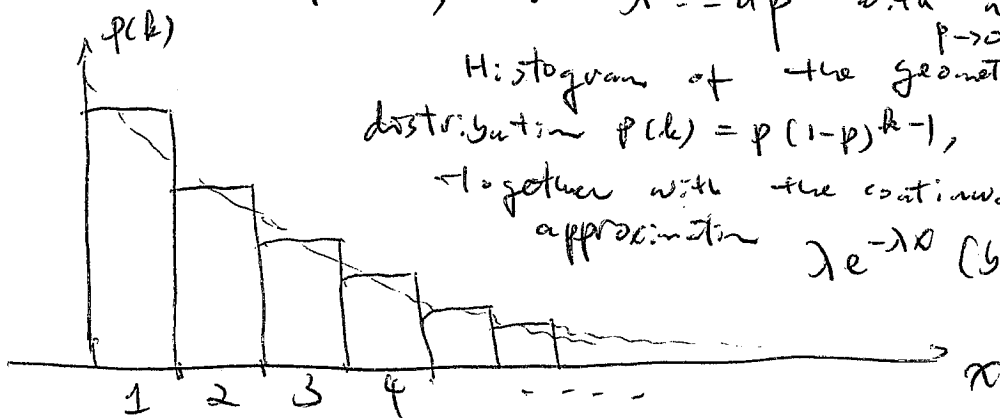 λ = -np with n
p→0
p(k)
Histogram of the geomet
distribution p(k) = p(1-p)^k-1,
together with the continuo
approximation λe^-λx (b
x
1 2 3 4 - - - -